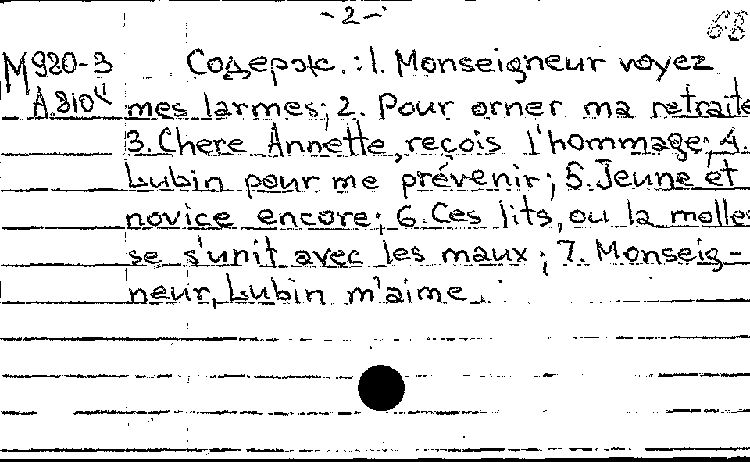 -2-
68
M920-3
A.810"
Содерж.: 1. Monseigneur voyez
mes larmes; 2. Pour orner ma retraite
3. Chere Annette, reçois l'hommage; 4.
Lubin pour me prévenir; 5. Jeune et
novice encore; 6. Ces lits, ou la molles
se s'unit avec les maux; 7. Monseig-
neur, Lubin m'aime.